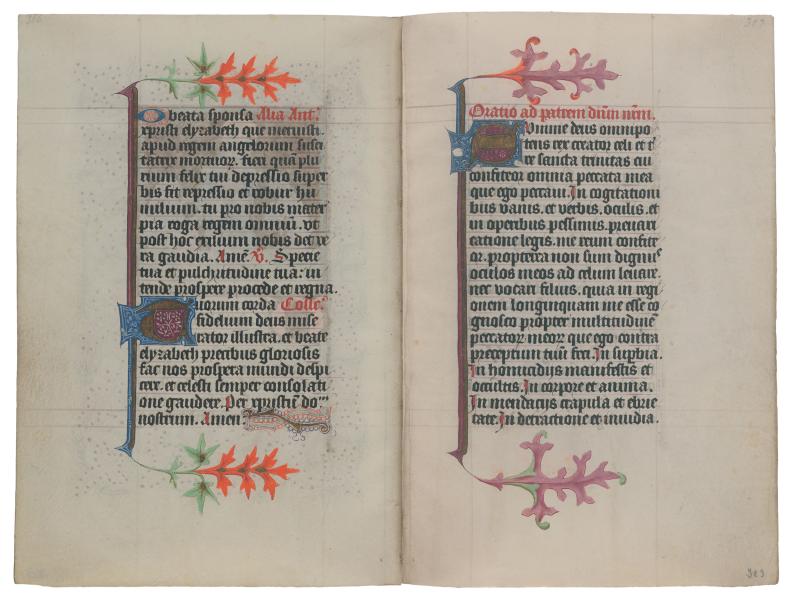 O beata sponsa Alia Ant.
xpristi elyzabeth que meruisti
apud regem angelorum susci
tatrix mortuor. fieri quā plu
rimum felix tui depressio super
bis fit repressio et robur hu
milium. tu pro nobis mater
pia roga regem omniū. vt
post hoc exilium nobis det ve
ra gaudia. Amē. V. Specie
tua et pulchritudine tua: in
tende prospere procede et regna.
Tuorum corda Colle.
fidelium deus mise
rator illustra. et beate
elyzabeth precibus gloriosis
fac nos prospera mundi despi
cere. et celesti semper consolati
one gaudere. Per xpristū do
nostrum. Amen
Oratio ad patrem diūn nrm.
O Vmme deus omnipo
tens rex creator celi et t
re sancta trinitas cui
confiteor omnia peccata mea
que ego peccaui. In cogitationi
bus vanis. et verbis. oculis. et
in operibus pessimis. preuari
catione legis. me reum confite
or. propterea non sum dignus
oculos meos ad celum leuare.
nec vocari filius. quia in regi
onem longinquam me esse co
gnosco propter multitudinē
peccatorz meorz que ego contra
preceptum tuū feci. In supbia.
In homicidijs manifestis et
occultis. In corpore et anima.
In mendacijs crapula et ebrie
tate. In detractione et inuidia.
303